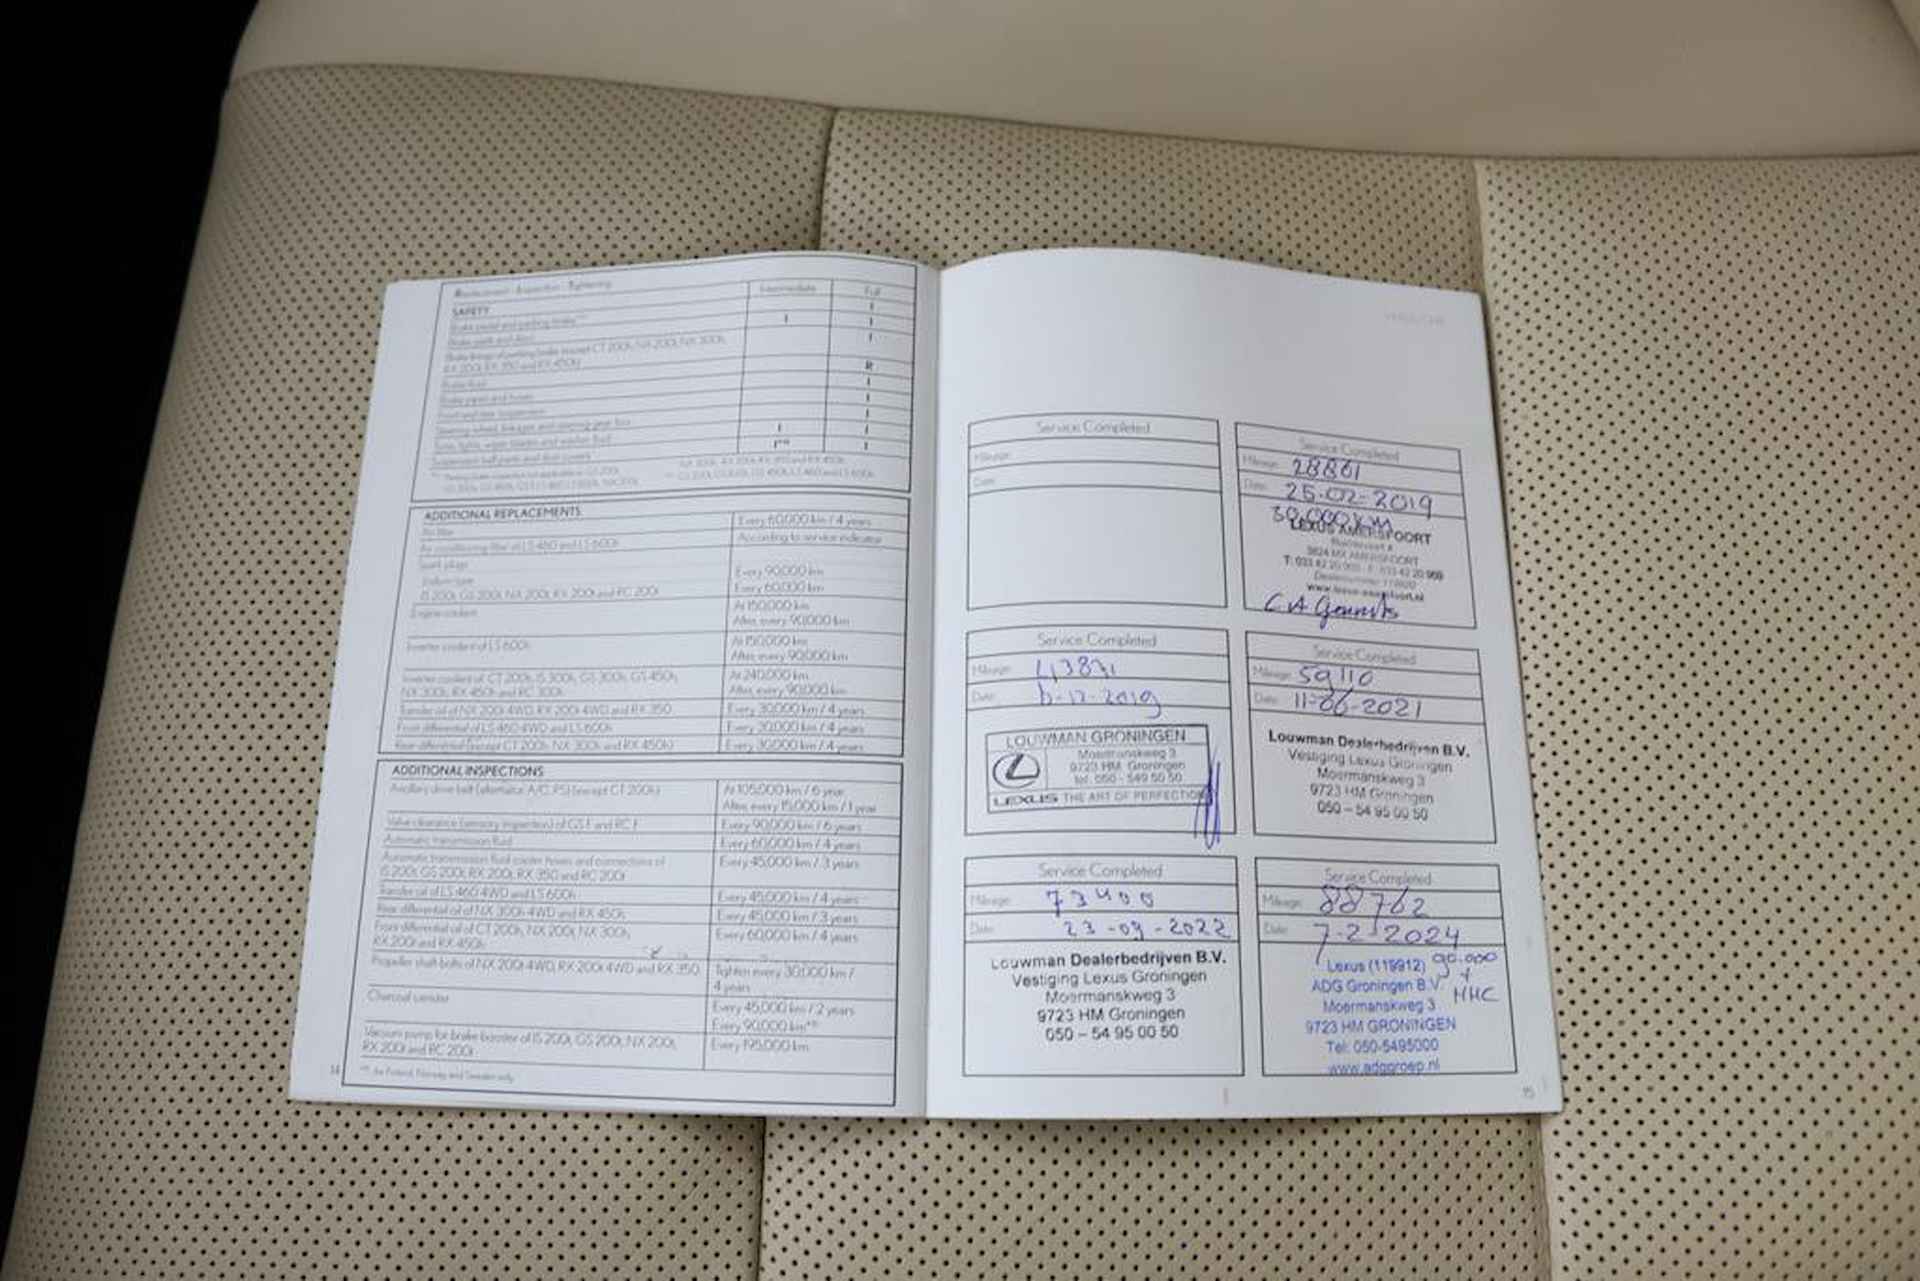 Replacement - Inspection - Tightening Intermediate Full
SAFETY I
Brake pedal and parking brake I I
Brake pads and discs I
Brake linings of parking brake (except CT 200h, NX 200t, NX 300h,
RX 200t, RX 350 and RX 450h)
Brake fluid R
Brake pipes and hoses I
Front and rear suspension I
Steering wheel, linkages and steering gear box I
I I
Suspension ball joints and dust covers I** I
ADDITIONAL REPLACEMENTS
Air filter Every 60,000 km / 4 years
Air conditioning filter of LS 460 and LS 600h According to service indicator
Spark plugs
Iridium type Every 90,000 km
IS 200t, GS 200t, NX 200t, RX 200t and RC 200t Every 60,000 km
Engine coolant At 160,000 km
After, every 90,000 km
Inverter coolant of LS 600h At 150,000 km
After, every 90,000 km
Inverter coolant of CT 200h, IS 300h, GS 300h, GS 450h, At 240,000 km
NX 300h, RX 450h and RC 300h After, every 90,000 km
Transfer oil of NX 200t 4WD, RX 200t 4WD and RX 350 Every 30,000 km / 4 years
Front differential of LS 460 4WD and LS 600h Every 30,000 km / 4 years
Rear differential (except CT 200h, NX 300h and RX 450h) Every 30,000 km / 4 years
ADDITIONAL INSPECTIONS
Ancillary drive belt (alternator, A/C, PS) (except CT 200h) At 105,000 km / 6 year
After, every 15,000 km / 1 year
Valve clearance (sensory inspection) of GS F and RC F Every 90,000 km / 6 years
Automatic transmission fluid Every 60,000 km / 4 years
Automatic transmission fluid cooler hoses and connections of Every 45,000 km / 3 years
IS 200t, GS 200t, RX 200t, RX 350 and RC 200t
Transfer oil of LS 460 4WD and LS 600h Every 45,000 km / 4 years
Rear differential oil of NX 300h 4WD and RX 450h Every 45,000 km / 3 years
Front differential oil of CT 200h, NX 200t, NX 300h, Every 60,000 km / 4 years
RX 200t and RX 450h
Propeller shaft bolts of NX 200t 4WD, RX 200t 4WD and RX 350 Tighten every 30,000 km /
4 years
Charcoal canister Every 45,000 km / 2 years
Every 90,000 km**
Vacuum pump for brake booster of IS 200t, GS 200t, NX 200t, Every 195,000 km
RX 200t and RC 200t
for Finland, Norway and Sweden only
14
Service Completed
Mileage:
Date:
Service Completed
Mileage: 28861
Date: 25-02-2019
30.000 km
LEXUS AMERSFOORT
3824 MX AMERSFOORT
Service Completed
Mileage: 43871
Date: 6-12-2019
LOUWMAN GRONINGEN
Moermanskweg 3
9723 HM Groningen
tel. 050 - 549 50 50
LEXUS THE ART OF PERFECTION
Service Completed
Mileage: 59110
Date: 11-06-2021
Louwman Dealerbedrijven B.V.
Vestiging Lexus Groningen
Moermanskweg 3
9723 HM Groningen
050 – 54 95 00 50
Service Completed
Mileage: 73400
Date: 23-09-2022
Louwman Dealerbedrijven B.V.
Vestiging Lexus Groningen
Moermanskweg 3
9723 HM Groningen
050 – 54 95 00 50
Service Completed
Mileage: 88762
Date: 7-2-2024
Lexus (119912) 90.000
ADG Groningen B.V. +
Moermanskweg 3 HHC
9723 HM GRONINGEN
Tel: 050-5495000
www.adggroep.nl
15